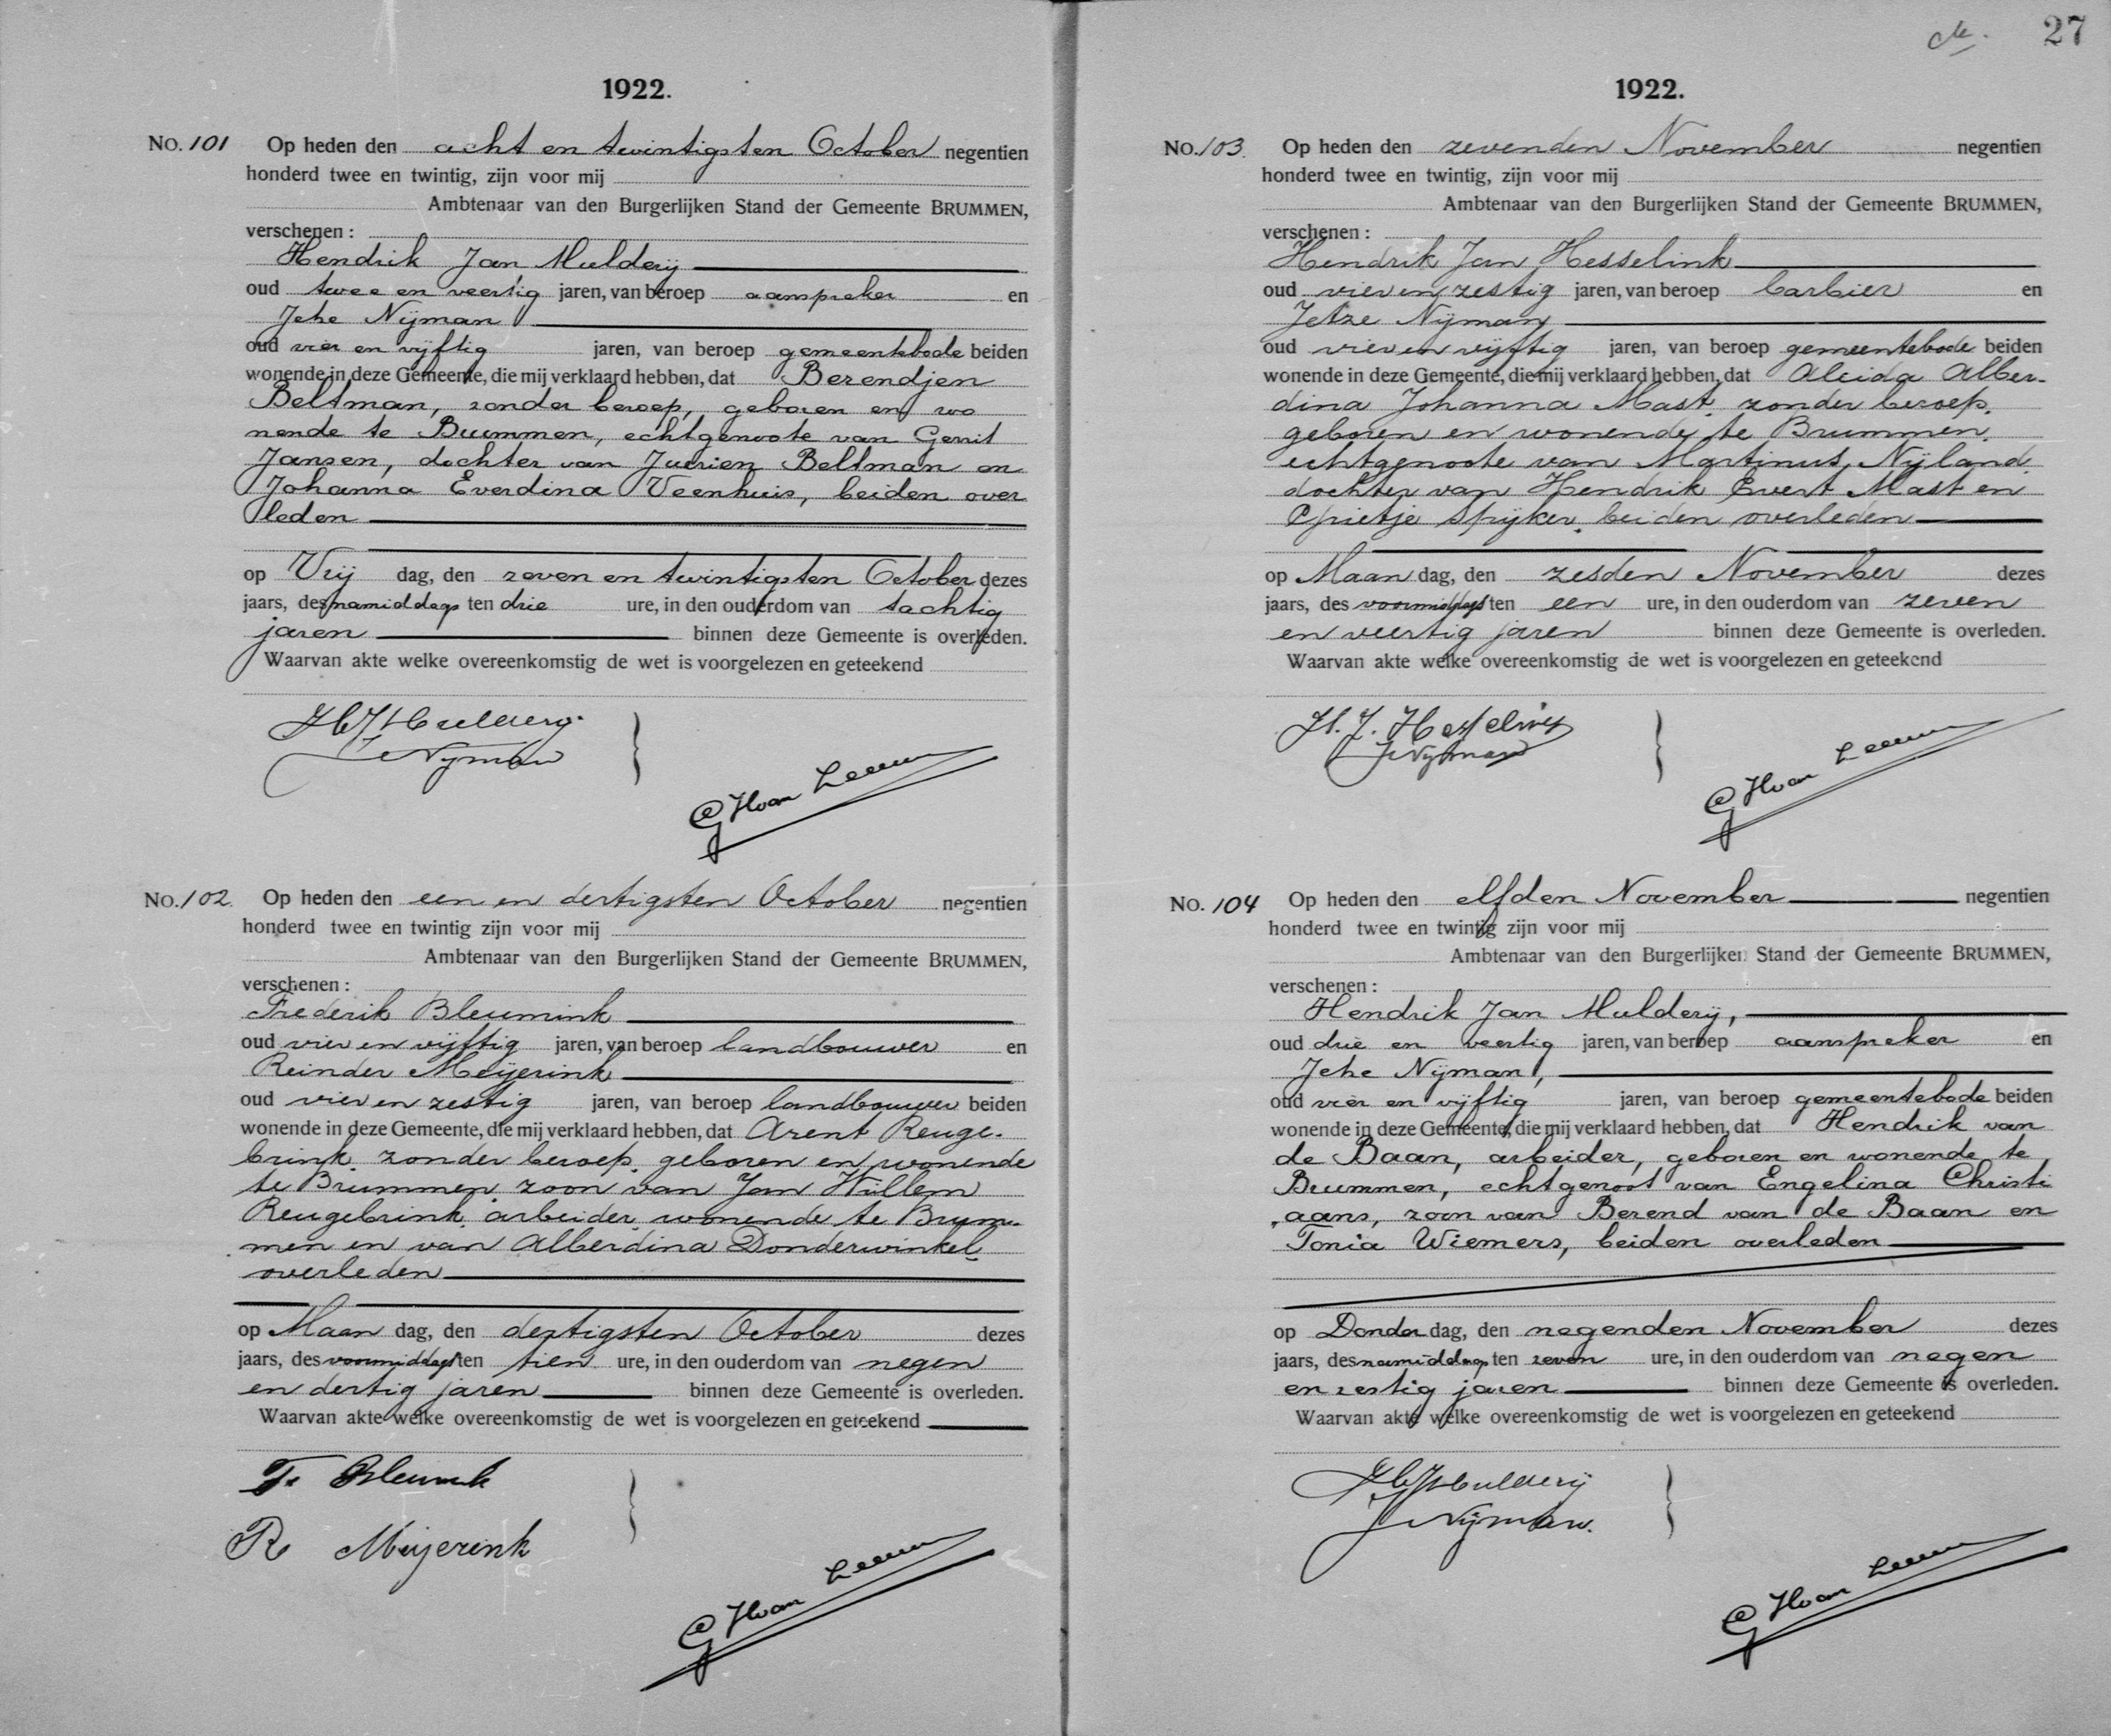 1922.
No. 101 Op heden den acht en twintigsten October negentien
honderd twee en twintig, zijn voor mij
Ambtenaar van den Burgerlijken Stand der Gemeente BRUMMEN,
verschenen :
Hendrik Jan Mulderij
oud twee en veertig jaren, van beroep aanspreker en
Jehe Nijman
oud vier en vijftig jaren, van beroep gemeentebode beiden
wonende in deze Gemeente, die mij verklaard hebben, dat Berendjen
Beltman, zonder beroep, geboren en wo
nende te Brummen, echtgenoote van Gerrit
Jansen, dochter van Jurrien Beltman en
Johanna Everdina Veenhuis, beiden over
leden
op Vrij dag, den zeven en twintigsten October dezes
jaars, des namiddags ten drie ure, in den ouderdom van tachtig
jaren binnen deze Gemeente is overleden.
Waarvan akte welke overeenkomstig de wet is voorgelezen en geteekend
HJMulderij
JNijman
GHvan Leeuwen
No. 102. Op heden den een en dertigsten October negentien
honderd twee en twintig zijn voor mij
Ambtenaar van den Burgerlijken Stand der Gemeente BRUMMEN,
verschenen :
Frederik Bleumink
oud vier en vijftig jaren, van beroep landbouwer en
Reinder Meijerink
oud vier en zestig jaren, van beroep landbouwer beiden
wonende in deze Gemeente, die mij verklaard hebben, dat Arent Reuge-
brink, zonder beroep, geboren en wonende
te Brummen, zoon van Jan Willem
Reugebrink, arbeider, wonende te Brum-
men en van Alberdina Donderwinkel,
overleden
op Maan dag, den dertigsten October dezes
jaars, des voormiddags ten tien ure, in den ouderdom van negen
en dertig jaren binnen deze Gemeente is overleden.
Waarvan akte welke overeenkomstig de wet is voorgelezen en geteekend
F. Bleumink
R Meijerink
GHvan Leeuwen
27
1922.
No. 103. Op heden den zevenden November negentien
honderd twee en twintig, zijn voor mij
Ambtenaar van den Burgerlijken Stand der Gemeente BRUMMEN,
verschenen :
Hendrik Jan Hesselink
oud vier en zestig jaren, van beroep barbier en
Jetze Nijman
oud vier en vijftig jaren, van beroep gemeentebode beiden
wonende in deze Gemeente, die mij verklaard hebben, dat Aleida Alber-
dina Johanna Mast, zonder beroep,
geboren en wonende te Brummen,
echtgenoote van Martinus Nijland,
dochter van Hendrik Evert Mast en
Grietje Spijker, beiden overleden
op Maan dag, den zesden November dezes
jaars, des voormiddags ten een ure, in den ouderdom van zeven
en veertig jaren binnen deze Gemeente is overleden.
Waarvan akte welke overeenkomstig de wet is voorgelezen en geteekend
H. J. Hesselink
JNijman
GHvan Leeuwen
No. 104 Op heden den elfden November negentien
honderd twee en twintig zijn voor mij
Ambtenaar van den Burgerlijken Stand der Gemeente BRUMMEN,
verschenen :
Hendrik Jan Mulderij,
oud drie en veertig jaren, van beroep aanspreker en
Jehe Nijman,
oud vier en vijftig jaren, van beroep gemeentebode beiden
wonende in deze Gemeente, die mij verklaard hebben, dat Hendrik van
de Baan, arbeider, geboren en wonende te
Brummen, echtgenoot van Engelina Christi
aans, zoon van Berend van de Baan en
Tonia Wiemers, beiden overleden
op Donder dag, den negenden November dezes
jaars, des namiddags ten zeven ure, in den ouderdom van negen
en zestig jaren binnen deze Gemeente is overleden.
Waarvan akte welke overeenkomstig de wet is voorgelezen en geteekend
HJMulderij
JNijman.
GHvan Leeuwen